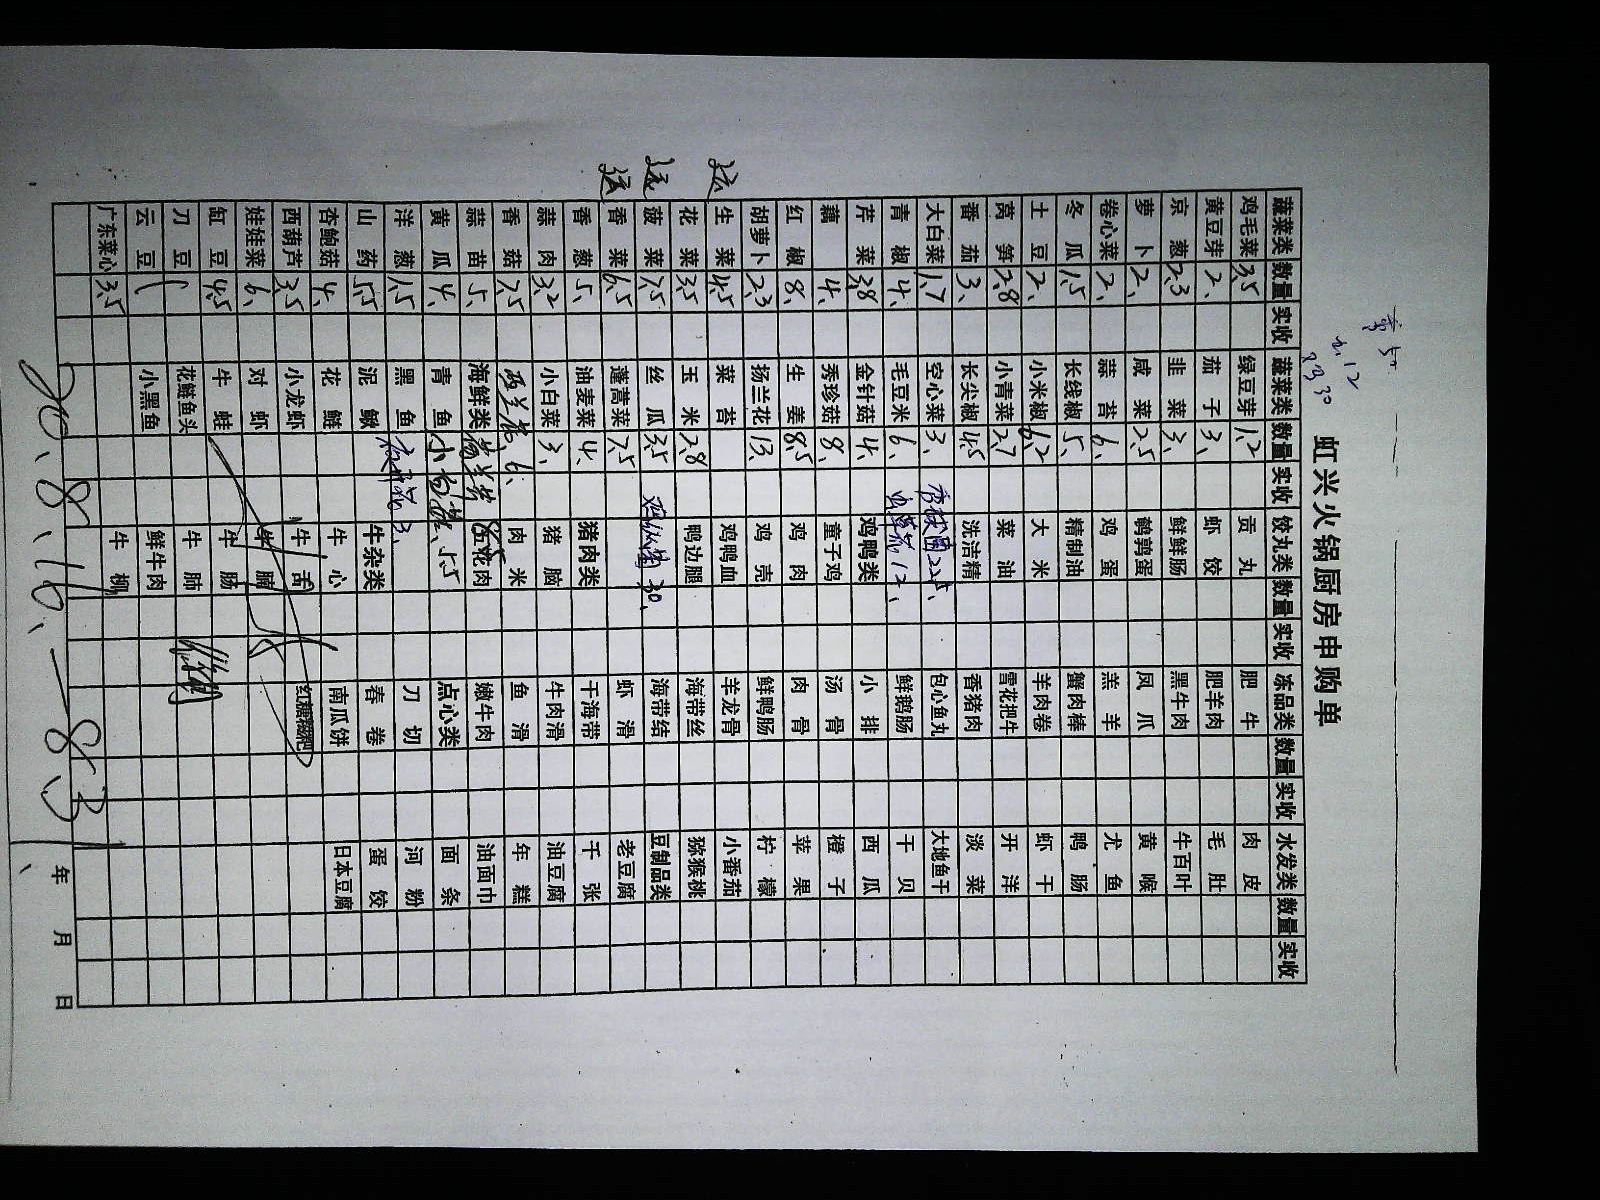 虹兴火锅厨房申购单
蔬菜类 数量 实收 蔬菜类 数量 实收 饺丸类 数量 实收 冻品类 数量 实收 水发类 数量 实收
鸡毛菜 3.5 绿豆芽 1.2 贡丸 肥牛 肉皮
黄豆芽 2、 茄子 3、 虾饺 肥羊肉 毛肚
京葱 2.3 韭菜 3、 鲜鲜肠 黑牛肉 牛百叶
萝卜 2、 咸菜 2.5 鹌鹑蛋 凤爪 黄喉
卷心菜 2、 蒜苔 6、 鸡蛋 羔羊 尤鱼
冬瓜 1.5 长线椒 5、 精制油 蟹肉棒 鸭肠
土豆 2、 小米椒 6.2 大米 羊肉卷 虾干
莴笋 2.8 小青菜 2.7 菜油 雪花把牛 开洋
番茄 3、 长尖椒 4.5 洗洁精 香猪肉 淡菜
大白菜 1.7 空心菜 3、 包心鱼丸 大地鱼干
青椒 4、 毛豆米 6、 虫草花 12、 鲜鹅肠 干贝
芹菜 3.8 金针菇 4、 鸡鸭类 小排 西瓜
藕 4、 秀珍菇 8、 童子鸡 汤骨 橙子
红椒 8、 生姜 8.5 鸡肉 肉骨 苹果
胡萝卜 2.3 扬兰花 13、 鸡壳 鲜鸭肠 柠檬
生菜 4.5 菜苔 鸡鸭血 羊龙骨 小番茄
花菜 3.5 玉米 2.8 鸭边腿 海带丝 猕猴桃
菠菜 7.5 丝瓜 3.5 30、 海带结 豆制品类
香菜 6.5 蓬蒿菜 7.5 虾滑 老豆腐
香葱 5、 油麦菜 4、 猪肉类 干海带 千张
蒜肉 3.2 小白菜 3、 猪脑 牛肉滑 油豆腐
香菇 7.5 6、 肉米 鱼滑 年糕
蒜苗 5、 海鲜类 五花肉 嫩牛肉 油面巾
黄瓜 4、 青鱼 5.5 点心类 面条
洋葱 1.5 黑鱼 3、 刀切 河粉
山药 5.5 泥鳅 牛杂类 春卷 蛋饺
杏鲍菇 4、 花鲢 牛心 南瓜饼 日本豆腐
西葫芦 3.5 小龙虾 牛舌 红糖糍粑
娃娃菜 6、 对虾 牛腩
缸豆 4.5 牛蛙 牛肠
刀豆 花鲢鱼头 牛肺
云豆 小黑鱼 鲜牛肉
广东菜心 3.5 牛柳
20.8.16、—8.31、
年 月 日